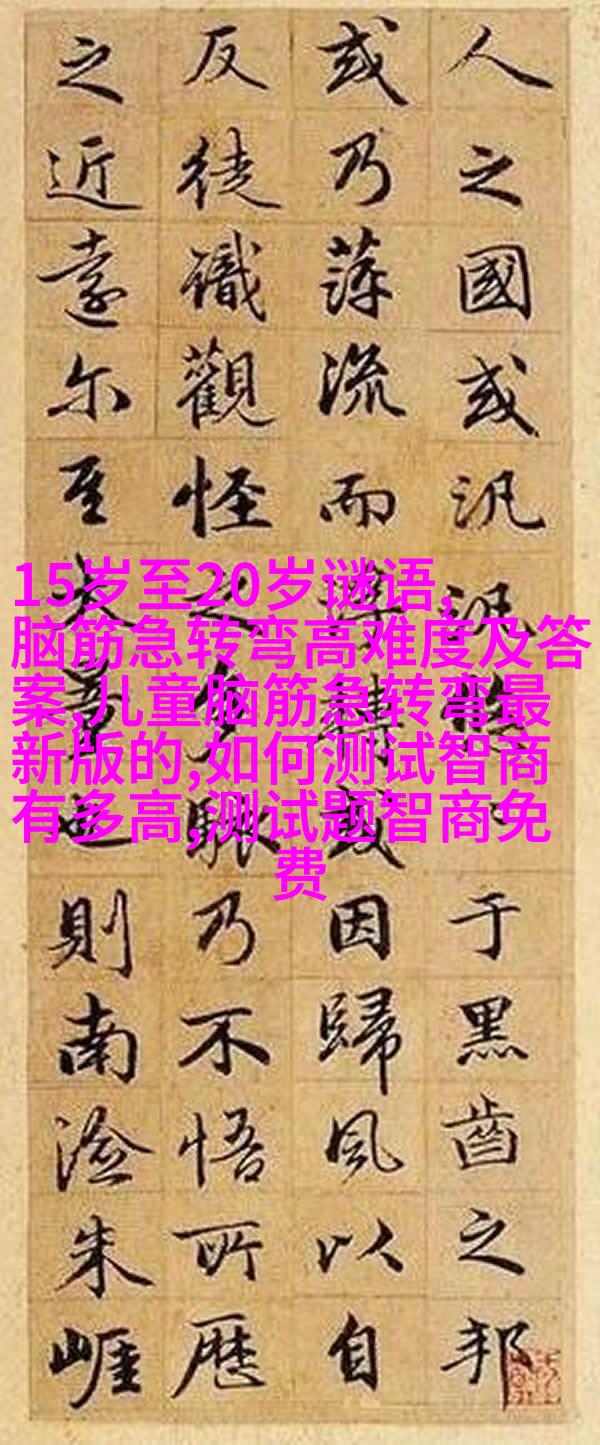 人之國或汎汎悠于黑齒之邦
或乃萍流而浮轉或因歸風以自
反徒識觀怪之多駭乃不悟所歷
之近遠尔其大量也則南澰朱崖
15岁至20岁谜语,
脑筋急转弯高难度及答
案,儿童脑筋急转弯最
新版的,如何测试智商
有多高,测试题智商免
费